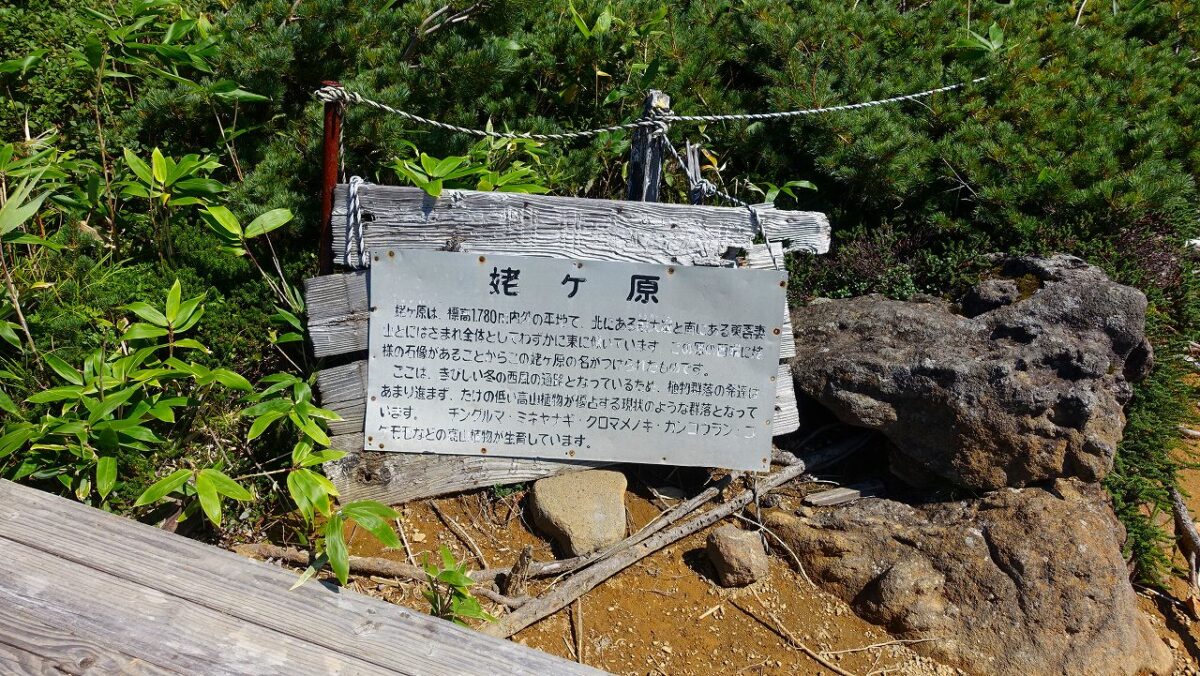 姥ヶ原
姥ヶ原は、標高1,780m内外の平地で、北にある一切経山と南にある東吾妻
山とにはさまれ全体としてわずかに東に傾いています。この原の西端に姥
様の石像があることからこの姥ヶ原の名がつけられたものです。
ここは、きびしい冬の西風の通路となっているため、植物群落の発達は
あまり進まず、たけの低い高山植物が優占する現状のような群落となって
います。 チングルマ・ミネヤナギ・クロマメノキ・ガンコウラン・コ
ケモモなどの高山植物が生育しています。